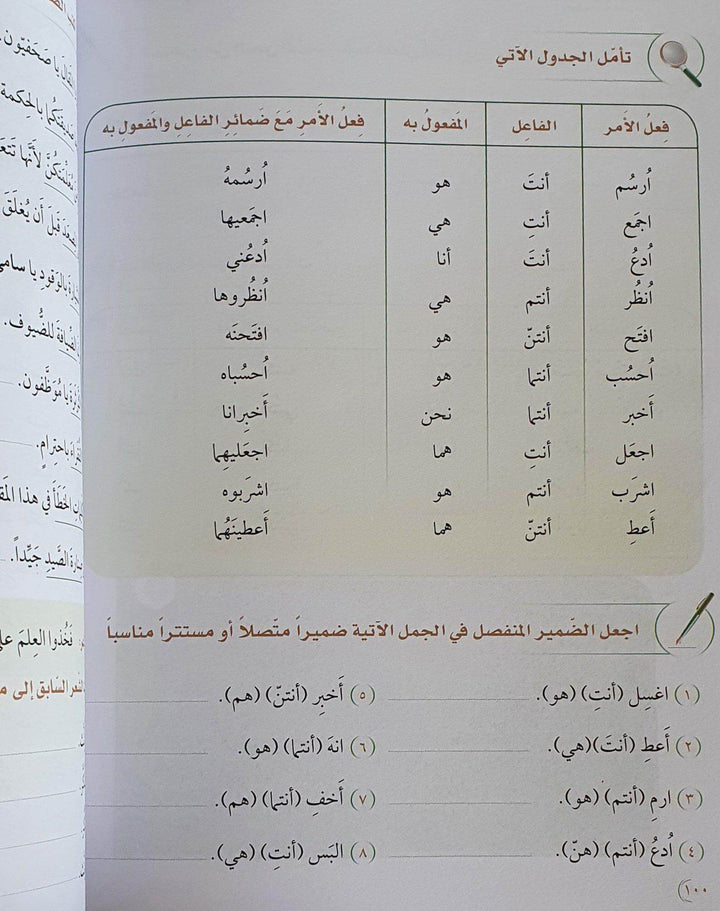 تأمّل الجدول الآتي
فِعلُ الأَمر الفاعِل المَفعولُ به فِعلُ الأَمرِ مَعَ ضَمائِرِ الفاعِلِ والمَفعولِ به
اُرسُم أنتَ هو اُرسُمهُ
اجمَع أنتِ هي اجمَعيها
اُدعُ أنتَ أنا اُدعُني
اُنظُر أنتم هي اُنظُروها
افتَح أنتنّ هو افتَحنَه
اُحسُب أنتما هو اُحسُباه
أَخبر أنتما نحن أَخبِرانا
اجعَل أنتِ هما اجعَليهِما
اشرَب أنتم هو اشرَبوه
أَعطِ أنتنّ هما أَعطينَهُما
اجعل الضَمير المنفصل في الجمل الآتية ضميراً متّصلاً أو مستتراً مناسباً
(١) اغسِل (أنتِ) (هو).
(٥) أَخبِر (أنتنّ) (هم).
(٢) أَعطِ (أنتَ)(هي).
(٦) انهَ (أنتما) (هو).
(٣) ارمِ (أنتم) (هو).
(٧) أَخفِ (أنتما) (هم).
(٤) اُدعُ (أنتم) (هنّ).
(٨) البَس (أنتِ) (هي).
١٠٠
يا صَحَفيّون.
بالحِكمة
لأنَّها
قَبلَ أن يُغلَقَ
بالوَقودِ يا سامي
للضُّيوف.
يا مُوَظَّفون.
باحتِرامٍ.
الخَطَأَ في هذا
الصَّيدِ جَيِّداً.
فَخُذوا العِلمَ
السّابق إلى